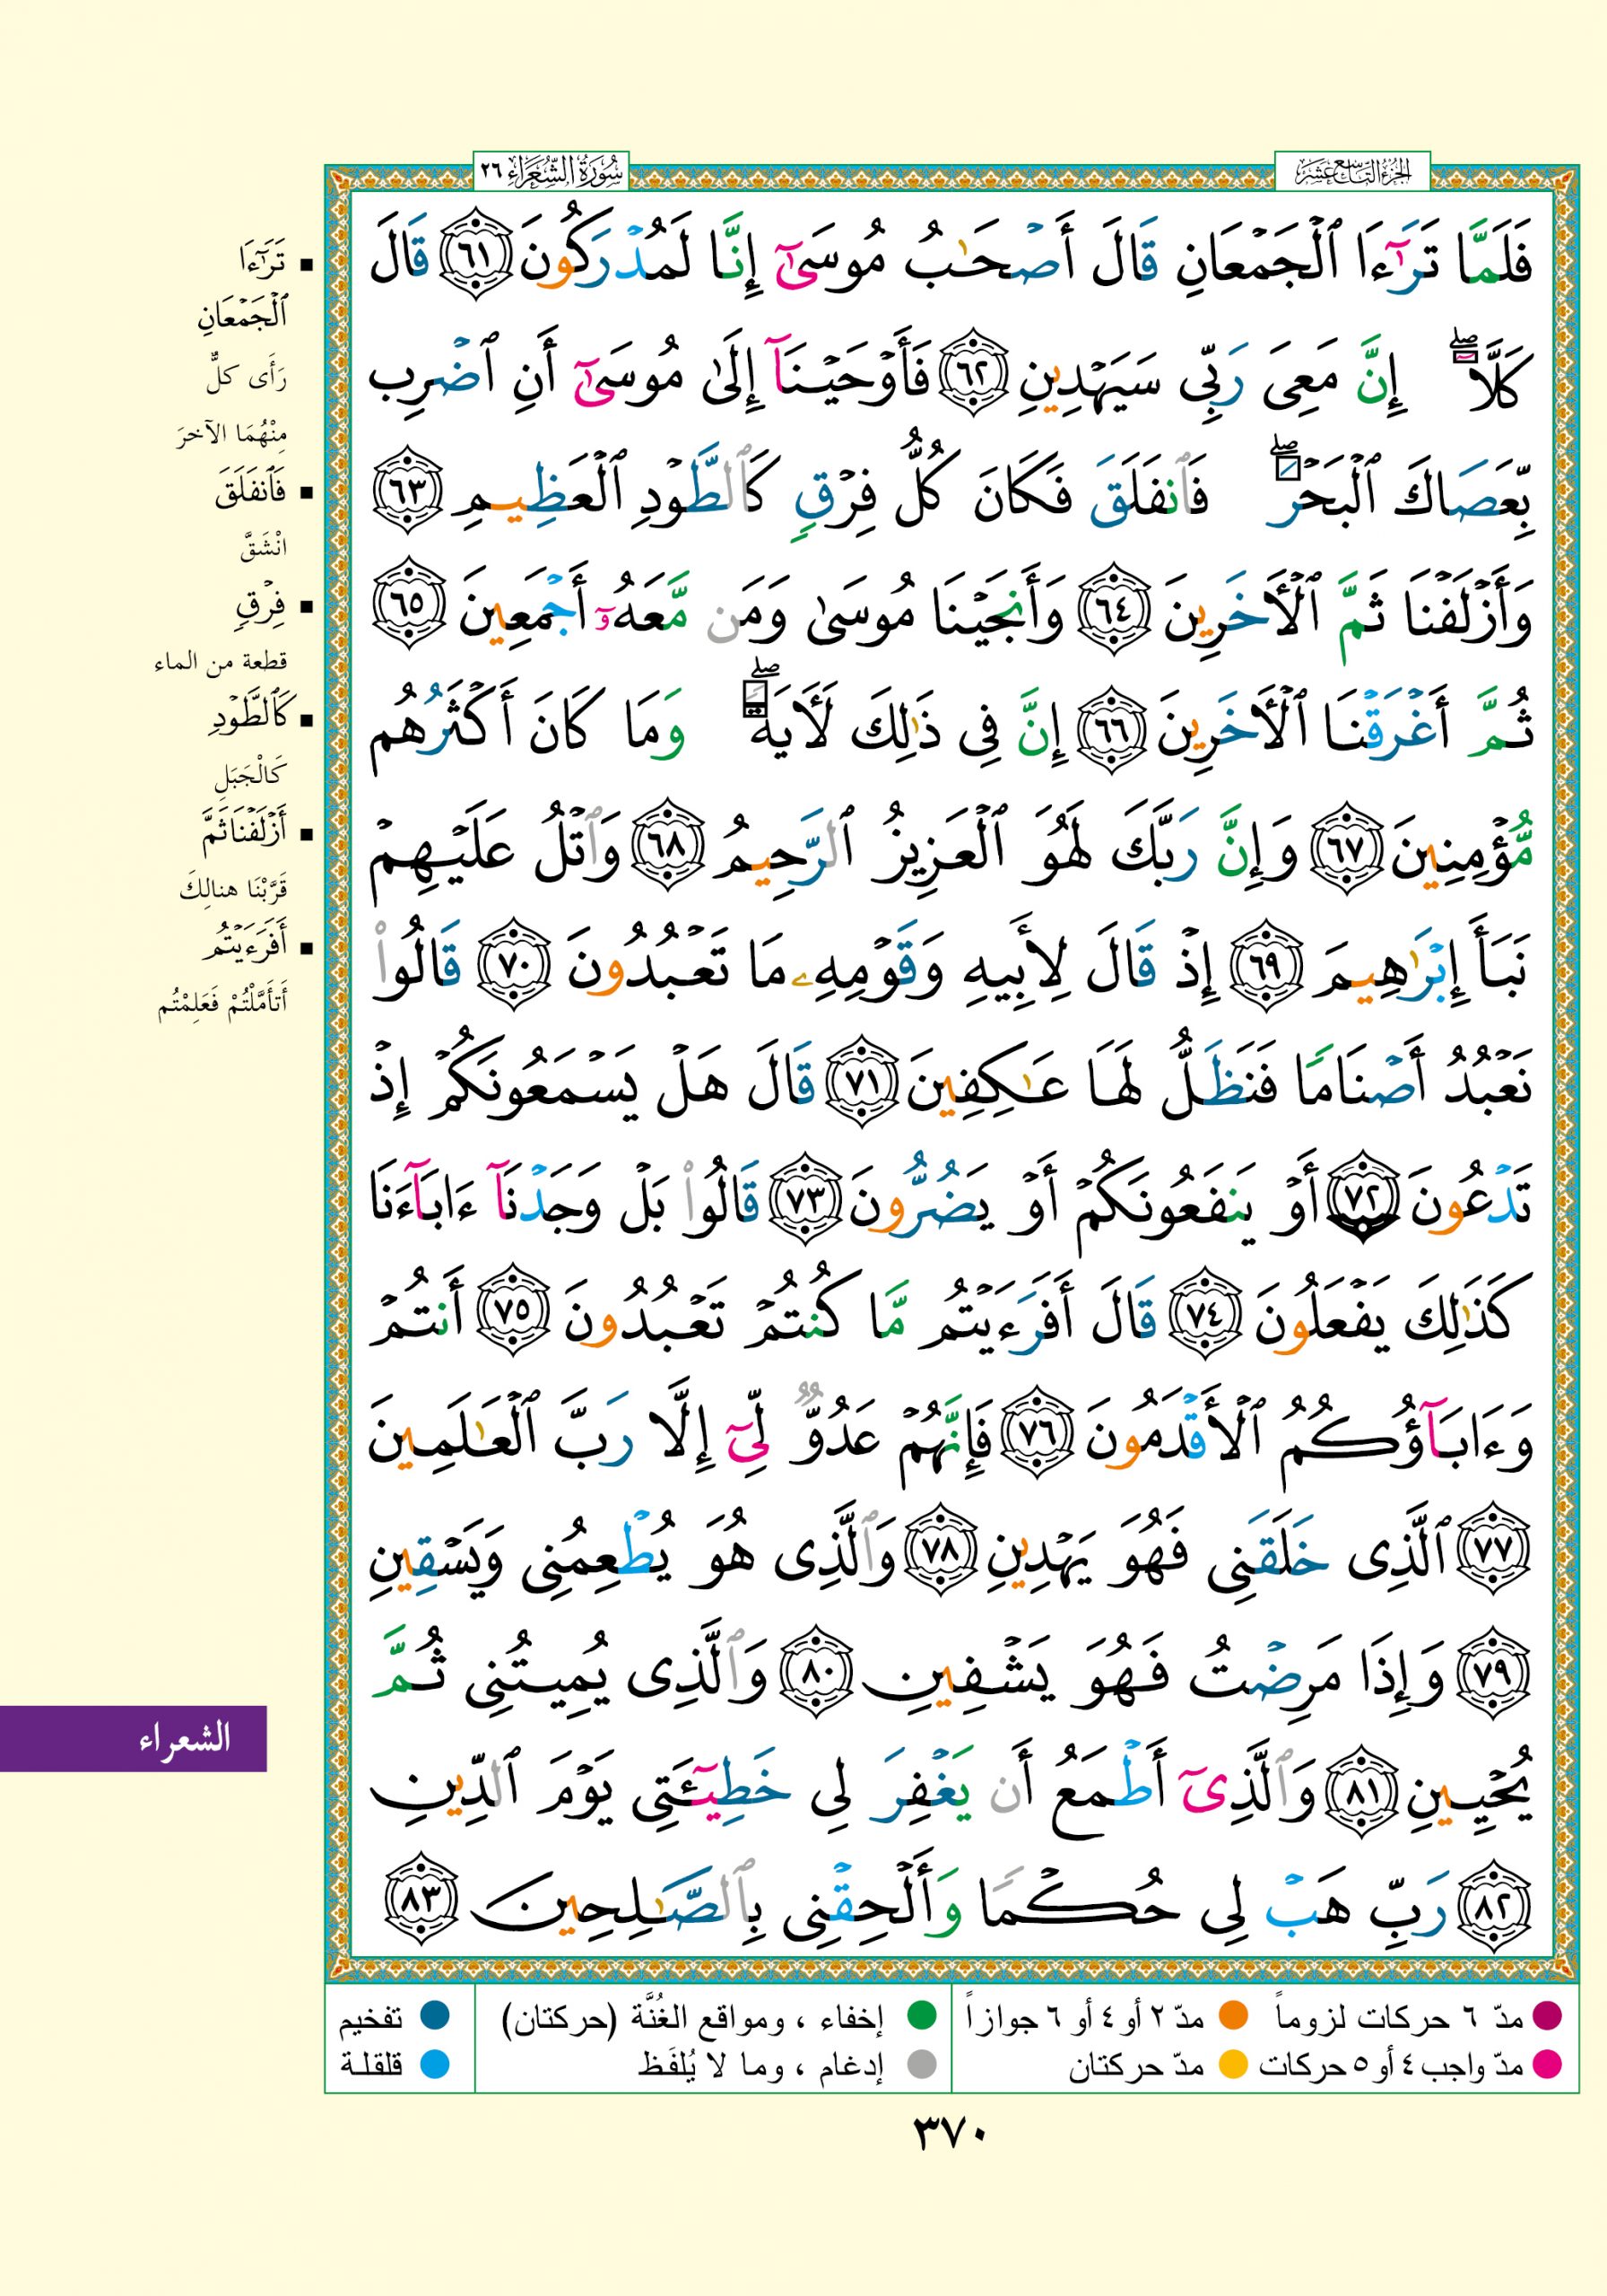 الجُزْءُ التَّاسِعَ عَشَرَ
سُورَةُ الشُّعَرَاءِ ٢٦
فَلَمَّا تَرَٰٓءَا ٱلۡجَمۡعَانِ قَالَ أَصۡحَٰبُ مُوسَىٰٓ إِنَّا لَمُدۡرَكُونَ ٦١ قَالَ
كَلَّاۖ إِنَّ مَعِيَ رَبِّي سَيَهۡدِينِ ٦٢ فَأَوۡحَيۡنَآ إِلَىٰ مُوسَىٰٓ أَنِ ٱضۡرِب
بِّعَصَاكَ ٱلۡبَحۡرَۖ فَٱنفَلَقَ فَكَانَ كُلُّ فِرۡقٖ كَٱلطَّوۡدِ ٱلۡعَظِيمِ ٦٣
وَأَزۡلَفۡنَا ثَمَّ ٱلۡأٓخَرِينَ ٦٤ وَأَنجَيۡنَا مُوسَىٰ وَمَن مَّعَهُۥٓ أَجۡمَعِينَ ٦٥
ثُمَّ أَغۡرَقۡنَا ٱلۡأٓخَرِينَ ٦٦ إِنَّ فِي ذَٰلِكَ لَأٓيَةٗۖ وَمَا كَانَ أَكۡثَرُهُم
مُّؤۡمِنِينَ ٦٧ وَإِنَّ رَبَّكَ لَهُوَ ٱلۡعَزِيزُ ٱلرَّحِيمُ ٦٨ وَٱتۡلُ عَلَيۡهِمۡ
نَبَأَ إِبۡرَٰهِيمَ ٦٩ إِذۡ قَالَ لِأَبِيهِ وَقَوۡمِهِۦ مَا تَعۡبُدُونَ ٧٠ قَالُواْ
نَعۡبُدُ أَصۡنَامٗا فَنَظَلُّ لَهَا عَٰكِفِينَ ٧١ قَالَ هَلۡ يَسۡمَعُونَكُمۡ إِذۡ
تَدۡعُونَ ٧٢ أَوۡ يَنفَعُونَكُمۡ أَوۡ يَضُرُّونَ ٧٣ قَالُواْ بَلۡ وَجَدۡنَآ ءَابَآءَنَا
كَذَٰلِكَ يَفۡعَلُونَ ٧٤ قَالَ أَفَرَءَيۡتُم مَّا كُنتُمۡ تَعۡبُدُونَ ٧٥ أَنتُمۡ
وَءَابَآؤُكُمُ ٱلۡأَقۡدَمُونَ ٧٦ فَإِنَّهُمۡ عَدُوّٞ لِّيٓ إِلَّا رَبَّ ٱلۡعَٰلَمِينَ
٧٧ ٱلَّذِي خَلَقَنِي فَهُوَ يَهۡدِينِ ٧٨ وَٱلَّذِي هُوَ يُطۡعِمُنِي وَيَسۡقِينِ
٧٩ وَإِذَا مَرِضۡتُ فَهُوَ يَشۡفِينِ ٨٠ وَٱلَّذِي يُمِيتُنِي ثُمَّ
يُحۡيِينِ ٨١ وَٱلَّذِيٓ أَطۡمَعُ أَن يَغۡفِرَ لِي خَطِيٓـَٔتِي يَوۡمَ ٱلدِّينِ
٨٢ رَبِّ هَبۡ لِي حُكۡمٗا وَأَلۡحِقۡنِي بِٱلصَّٰلِحِينَ ٨٣
▪ تَرَٰٓءَا
ٱلۡجَمۡعَانِ
رَأَى كلٌّ
مِنْهُمَا الآخرَ
▪ فَٱنفَلَقَ
انْشَقَّ
▪ فِرۡقٖ
قطعة من الماء
▪ كَٱلطَّوۡدِ
كَالْجَبَلِ
▪ أَزۡلَفۡنَا ثَمَّ
قَرَّبْنَا هنالِكَ
▪ أَفَرَءَيۡتُم
أَتأَمَّلْتُمْ فَعَلِمْتُم
الشعراء
مدّ ٦ حركات لزوماً مدّ ٢ أو ٤ أو ٦ جوازاً إخفاء ، ومواقع الغُنَّة (حركتان) تفخيم
مدّ واجب ٤ أو ٥ حركات مدّ حركتان إدغام ، وما لا يُلفَظ قلقلة
٣٧٠